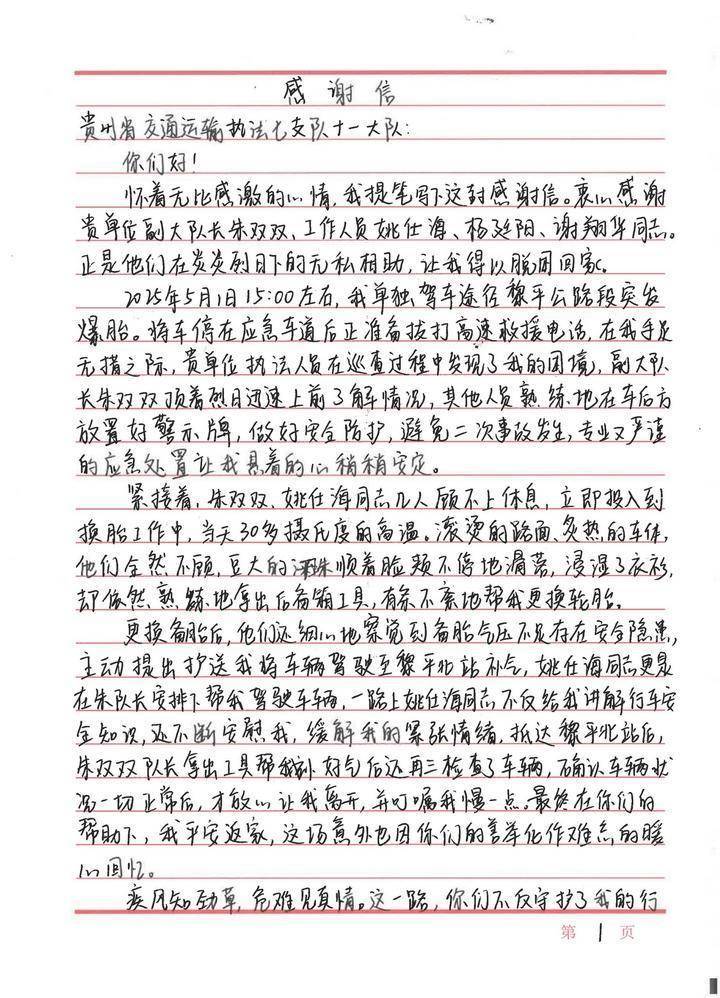 感谢信
贵州省交通运输执法七支队十一大队：
你们好！
怀着无比感激的心情，我提笔写下这封感谢信。衷心感谢
贵单位副大队长朱双双、工作人员姚仕海、杨廷阳、谢翔华同志。
正是他们在炎炎烈日下的无私相助，让我得以脱困回家。
2025年5月1日15:00左右，我单独驾车途径黎平公路段突发
爆胎。将车停在应急车道后正准备拨打高速救援电话，在我手足
无措之际，贵单位执法人员在巡查过程中发现了我的困境，副大队
长朱双双顶着烈日迅速上前了解情况，其他人员熟练地在车后方
放置好警示牌，做好安全防护，避免二次事故发生，专业又严谨
的应急处置让我悬着的心稍稍安定。
紧接着，朱双双、姚仕海同志几人顾不上休息，立即投入到
换胎工作中，当天30多摄氏度的高温。滚烫的路面、炙热的车体，
他们全然不顾，豆大的汗珠顺着脸颊不停地滑落，浸湿了衣衫，
却依然熟练地拿出后备箱工具，有条不紊地帮我更换轮胎。
更换备胎后，他们还细心地察觉到备胎气压不足存在安全隐患，
主动提出护送我将车辆驾驶至黎平北站补气，姚仕海同志更是
在朱队长安排下帮我驾驶车辆，一路上姚仕海同志不仅给我讲解行车安
全知识，还不断安慰我，缓解我的紧张情绪，抵达黎平北站后，
朱双双队长拿出工具帮我补好气后还再三检查了车辆，确认车辆状
况一切正常后，才放心让我离开，并叮嘱我慢一点。最终在你们的
帮助下，我平安返家，这场意外也因你们的善举化作难忘的暖
心回忆。
疾风知劲草，危难见真情。这一路，你们不仅守护了我的行
第 1 页